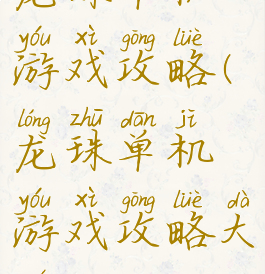 yóu xì gōng lüè
游戏攻略(
lóng zhū dān jī
龙珠单机
yóu xì gōng lüè dà
游戏攻略大